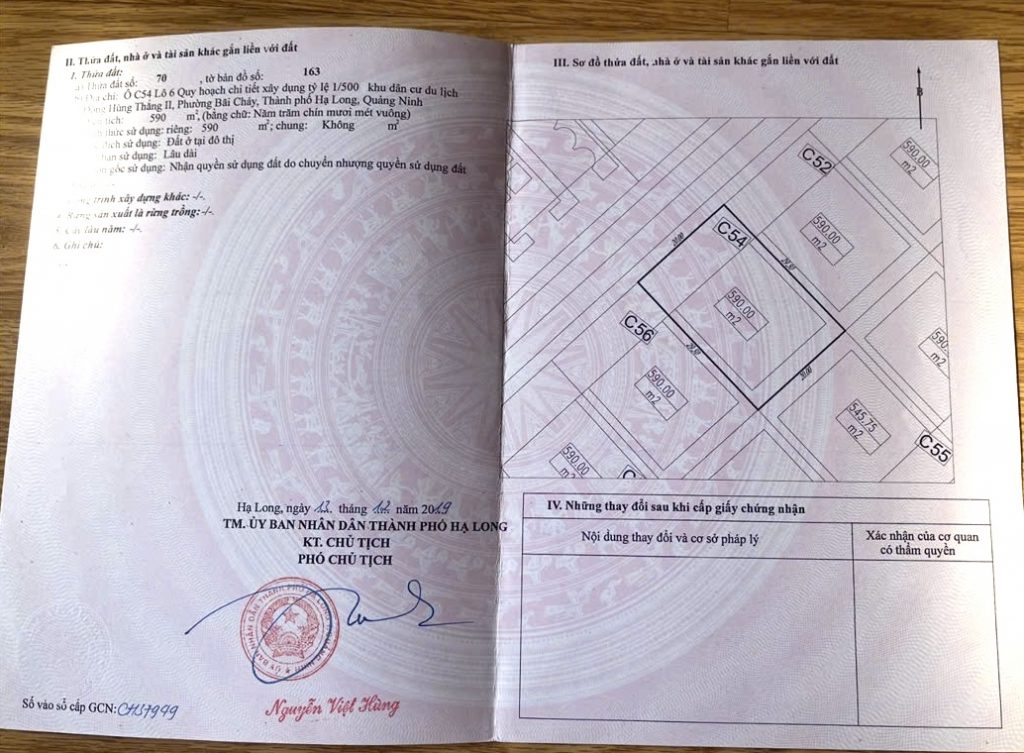 II. Thửa đất, nhà ở và tài sản khác gắn liền với đất
1. Thửa đất:
a) Thửa đất số: 70 , tờ bản đồ số: 163
Địa chỉ: Ô C54 Lô 6 Quy hoạch chi tiết xây dựng tỷ lệ 1/500 khu dân cư du lịch
Đông Hùng Thắng II, Phường Bãi Cháy, Thành phố Hạ Long, Quảng Ninh
tích: 590 m², (bằng chữ: Năm trăm chín mươi mét vuông)
thức sử dụng: riêng: 590 m²; chung: Không m²
đích sử dụng: Đất ở tại đô thị
hạn sử dụng: Lâu dài
gốc sử dụng: Nhận quyền sử dụng đất do chuyển nhượng quyền sử dụng đất
trình xây dựng khác: -/-.
4. Rừng sản xuất là rừng trồng: -/-.
5. Cây lâu năm: -/-.
6. Ghi chú:
Hạ Long, ngày 12 tháng 12 năm 2019
TM. ỦY BAN NHÂN DÂN THÀNH PHỐ HẠ LONG
KT. CHỦ TỊCH
PHÓ CHỦ TỊCH
ỦY BAN NHÂN DÂN THÀNH PHỐ HẠ LONG
Nguyễn Việt Hùng
Số vào sổ cấp GCN: CHS7999
III. Sơ đồ thửa đất, nhà ở và tài sản khác gắn liền với đất
B
C52
590.00
m2
590.00
m2
C54
20.00
29.50
590.00
m2
C56
29.50
20.00
590.00
m2
590.
m2
545.75
m2
C55
590.00
m2
C
IV. Những thay đổi sau khi cấp giấy chứng nhận
Nội dung thay đổi và cơ sở pháp lý
Xác nhận của cơ quan
có thẩm quyền